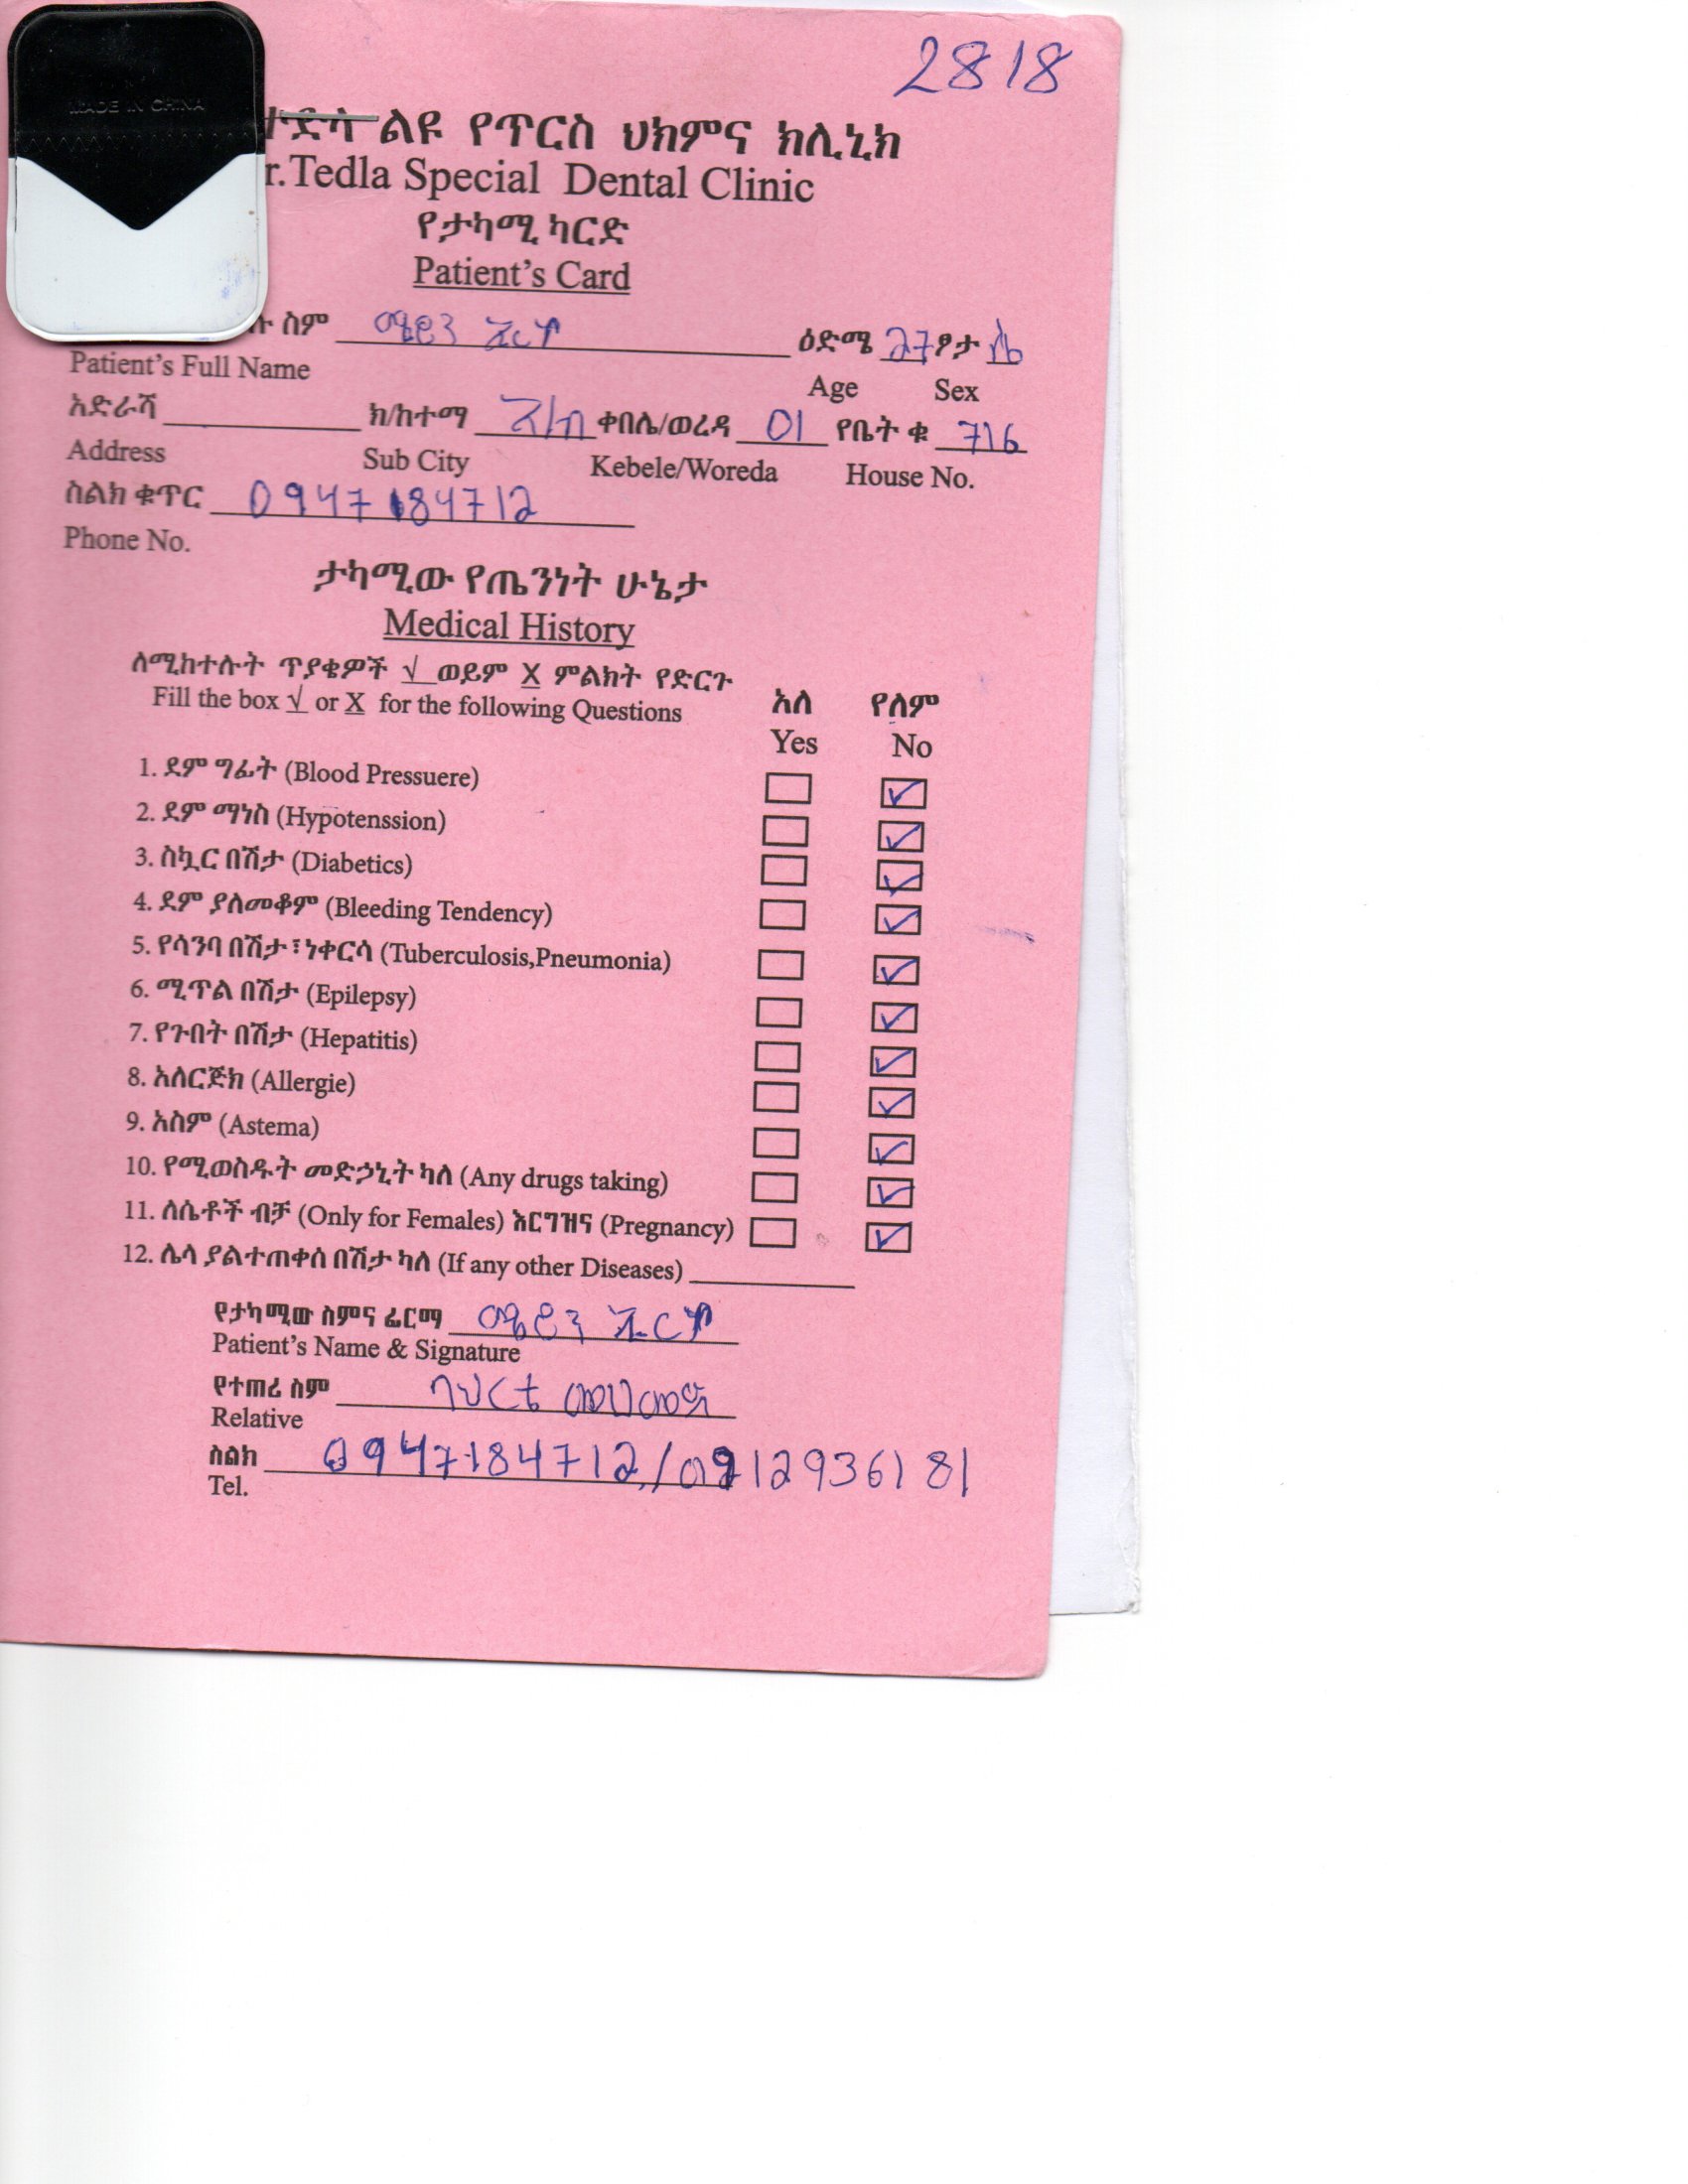 2818
MADE IN CHINA
ተድላ ልዩ የጥርስ ህክምና ክሊኒክ
r.Tedla Special Dental Clinic
የታካሚ ካርድ
Patient's Card
ሉ ስም ዕድሜ 27 ፆታ ሴ
Patient's Full Name Age Sex
አድራሻ ክ/ከተማ ቀበሌ/ወረዳ 01 የቤት ቁ 716
Address Sub City Kebele/Woreda House No.
ስልክ ቁጥር 0947184712
Phone No.
ታካሚው የጤንነት ሁኔታ
Medical History
ለሚከተሉት ጥያቄዎች √ ወይም X ምልክት የድርጉ
Fill the box √ or X for the following Questions
አለ የለም
Yes No
1. ደም ግፊት (Blood Pressuere) ✓
2. ደም ማነስ (Hypotenssion) ✓
3. ስኳር በሽታ (Diabetics) ✓
4. ደም ያለመቆም (Bleeding Tendency) ✓
5. የሳንባ በሽታ፣ነቀርሳ (Tuberculosis,Pneumonia) ✓
6. ሚጥል በሽታ (Epilepsy) ✓
7. የጉበት በሽታ (Hepatitis) ✓
8. አለርጅክ (Allergie) ✓
9. አስም (Astema) ✓
10. የሚወስዱት መድኃኒት ካለ (Any drugs taking) ✓
11. ለሴቶች ብቻ (Only for Females) እርግዝና (Pregnancy) ✓
12. ሌላ ያልተጠቀሰ በሽታ ካለ (If any other Diseases)
የታካሚው ስምና ፊርማ
Patient's Name & Signature
የተጠሪ ስም
Relative
ስልክ 0947184712/0912936181
Tel.